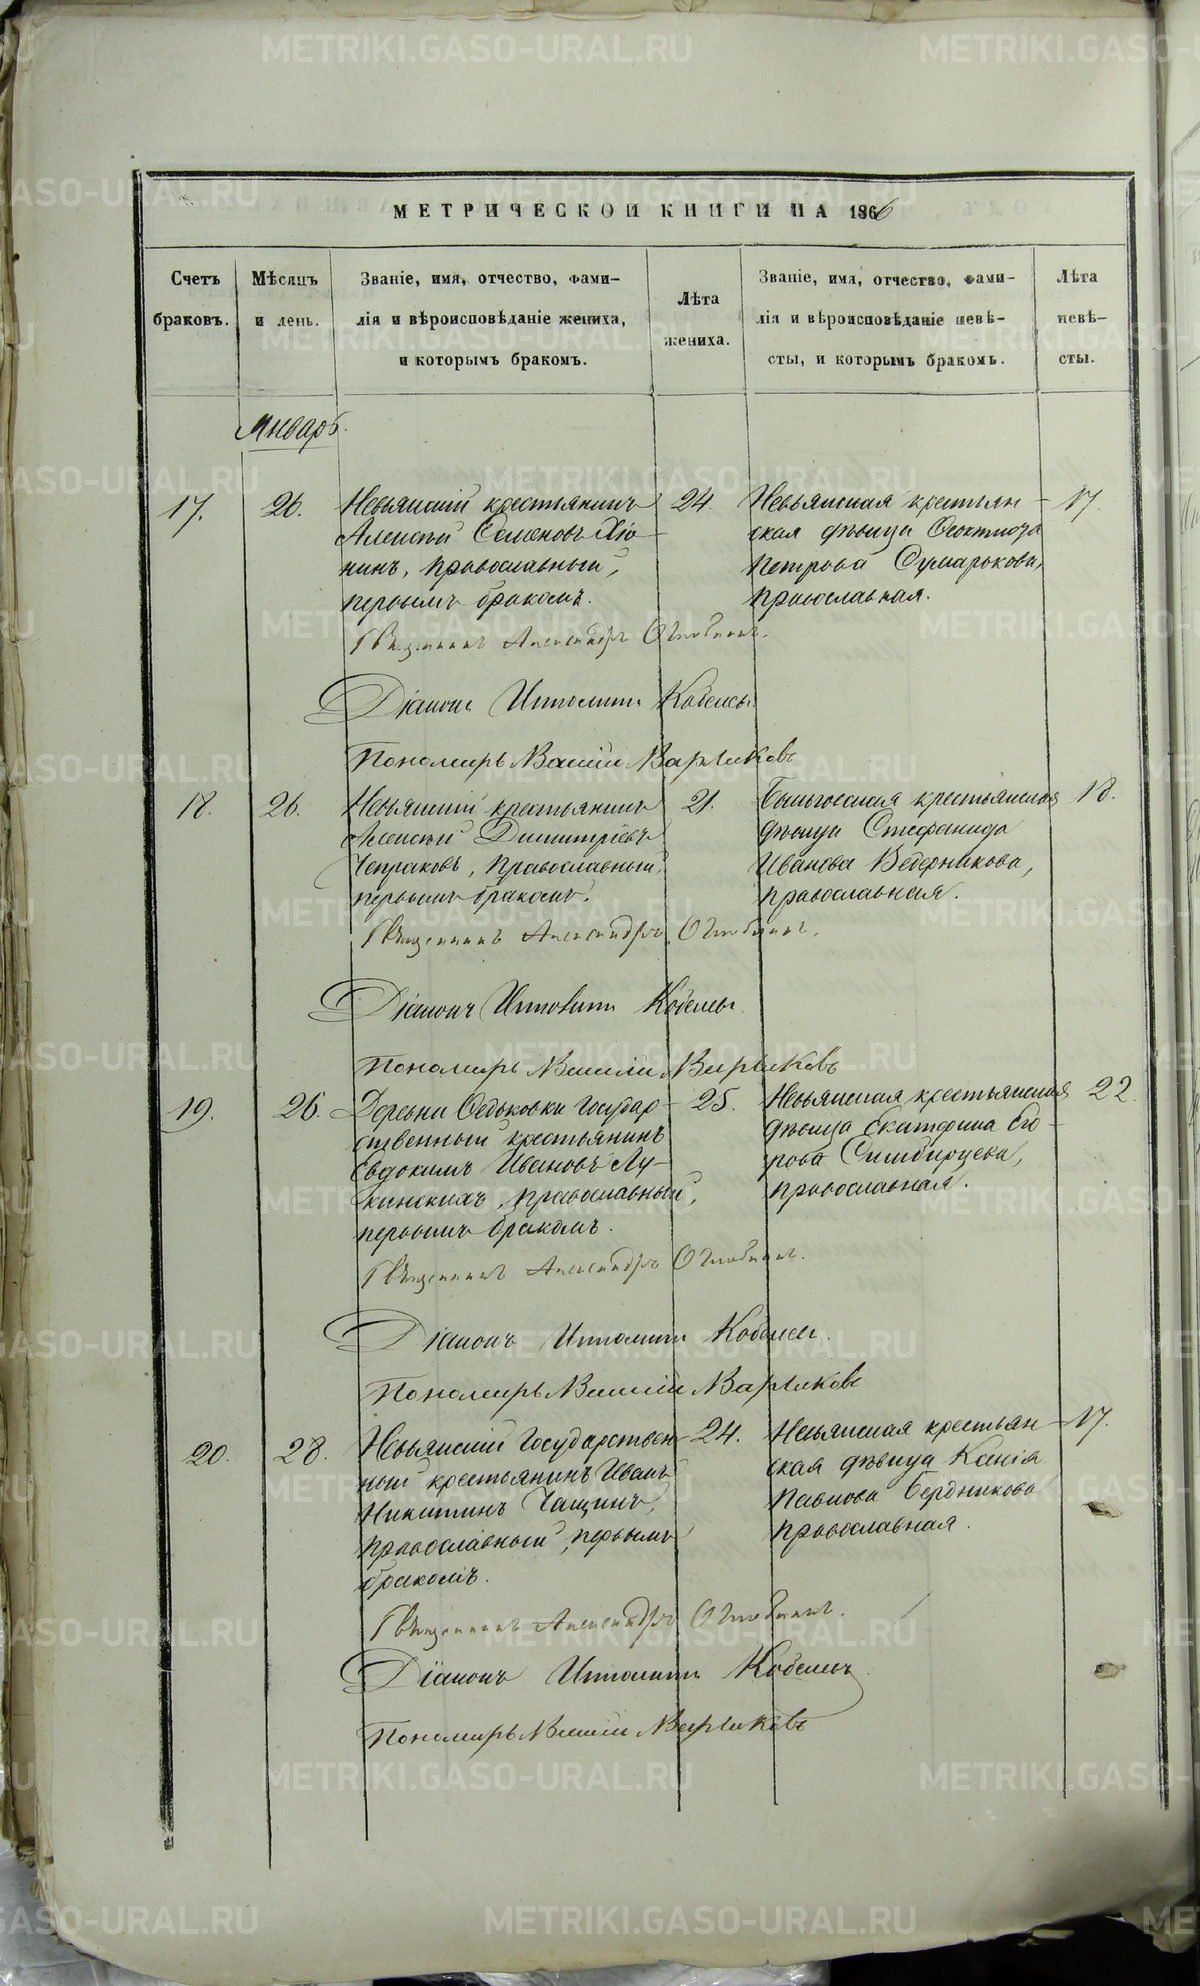 МЕТРИЧЕСКОЙ КНИГИ НА 1866
Счетъ
браковъ.
Мѣсяцъ
и день.
Званіе, имя, отчество, фами-
лія и вѣроисповѣданіе жениха,
и которымъ бракомъ.
Лѣта
жениха.
Званіе, имя, отчество, фами-
лія и вѣроисповѣданіе невѣ-
сты, и которымъ бракомъ.
Лѣта
невѣ-
сты.
Январь.
17.
26.
Невьянскій крестьянинъ
Алексѣй Семеновъ Хіо-
нинъ, православный,
первымъ бракомъ.
24.
Невьянская крестьян-
ская дѣвица Феоктиста
Петрова Сумарокова,
православная.
17.
Священникъ Александръ
Діаконъ Ипполитъ
Пономарь Василій
18.
26.
Невьянскій крестьянинъ
Алексѣй Димитріевъ
Чепраковъ, православный,
первымъ бракомъ.
21.
Быньговская крестьянская
дѣвица Стефанида
Иванова Ведерникова,
православная.
18.
Священникъ Александръ
Діаконъ Ипполитъ
Пономарь Василій
19.
26.
Деревни Федьковки Государ-
ственный крестьянинъ
Евдокимъ Ивановъ Лу-
кинскихъ, православный,
первымъ бракомъ.
25.
Невьянская крестьянская
дѣвица Екатерина Его-
рова Симбирцева,
православная.
22.
Священникъ Александръ
Діаконъ Ипполитъ
Пономарь Василій
20.
28.
Невьянскій Государствен-
ный крестьянинъ Иванъ
Никитинъ Чащинъ,
православный, первымъ
бракомъ.
24.
Невьянская крестьян-
ская дѣвица Ксенія
Павлова Бердникова
православная.
17.
Священникъ Александръ
Діаконъ Ипполитъ
Пономарь Василій
METRIKI.GASO-URAL.RU